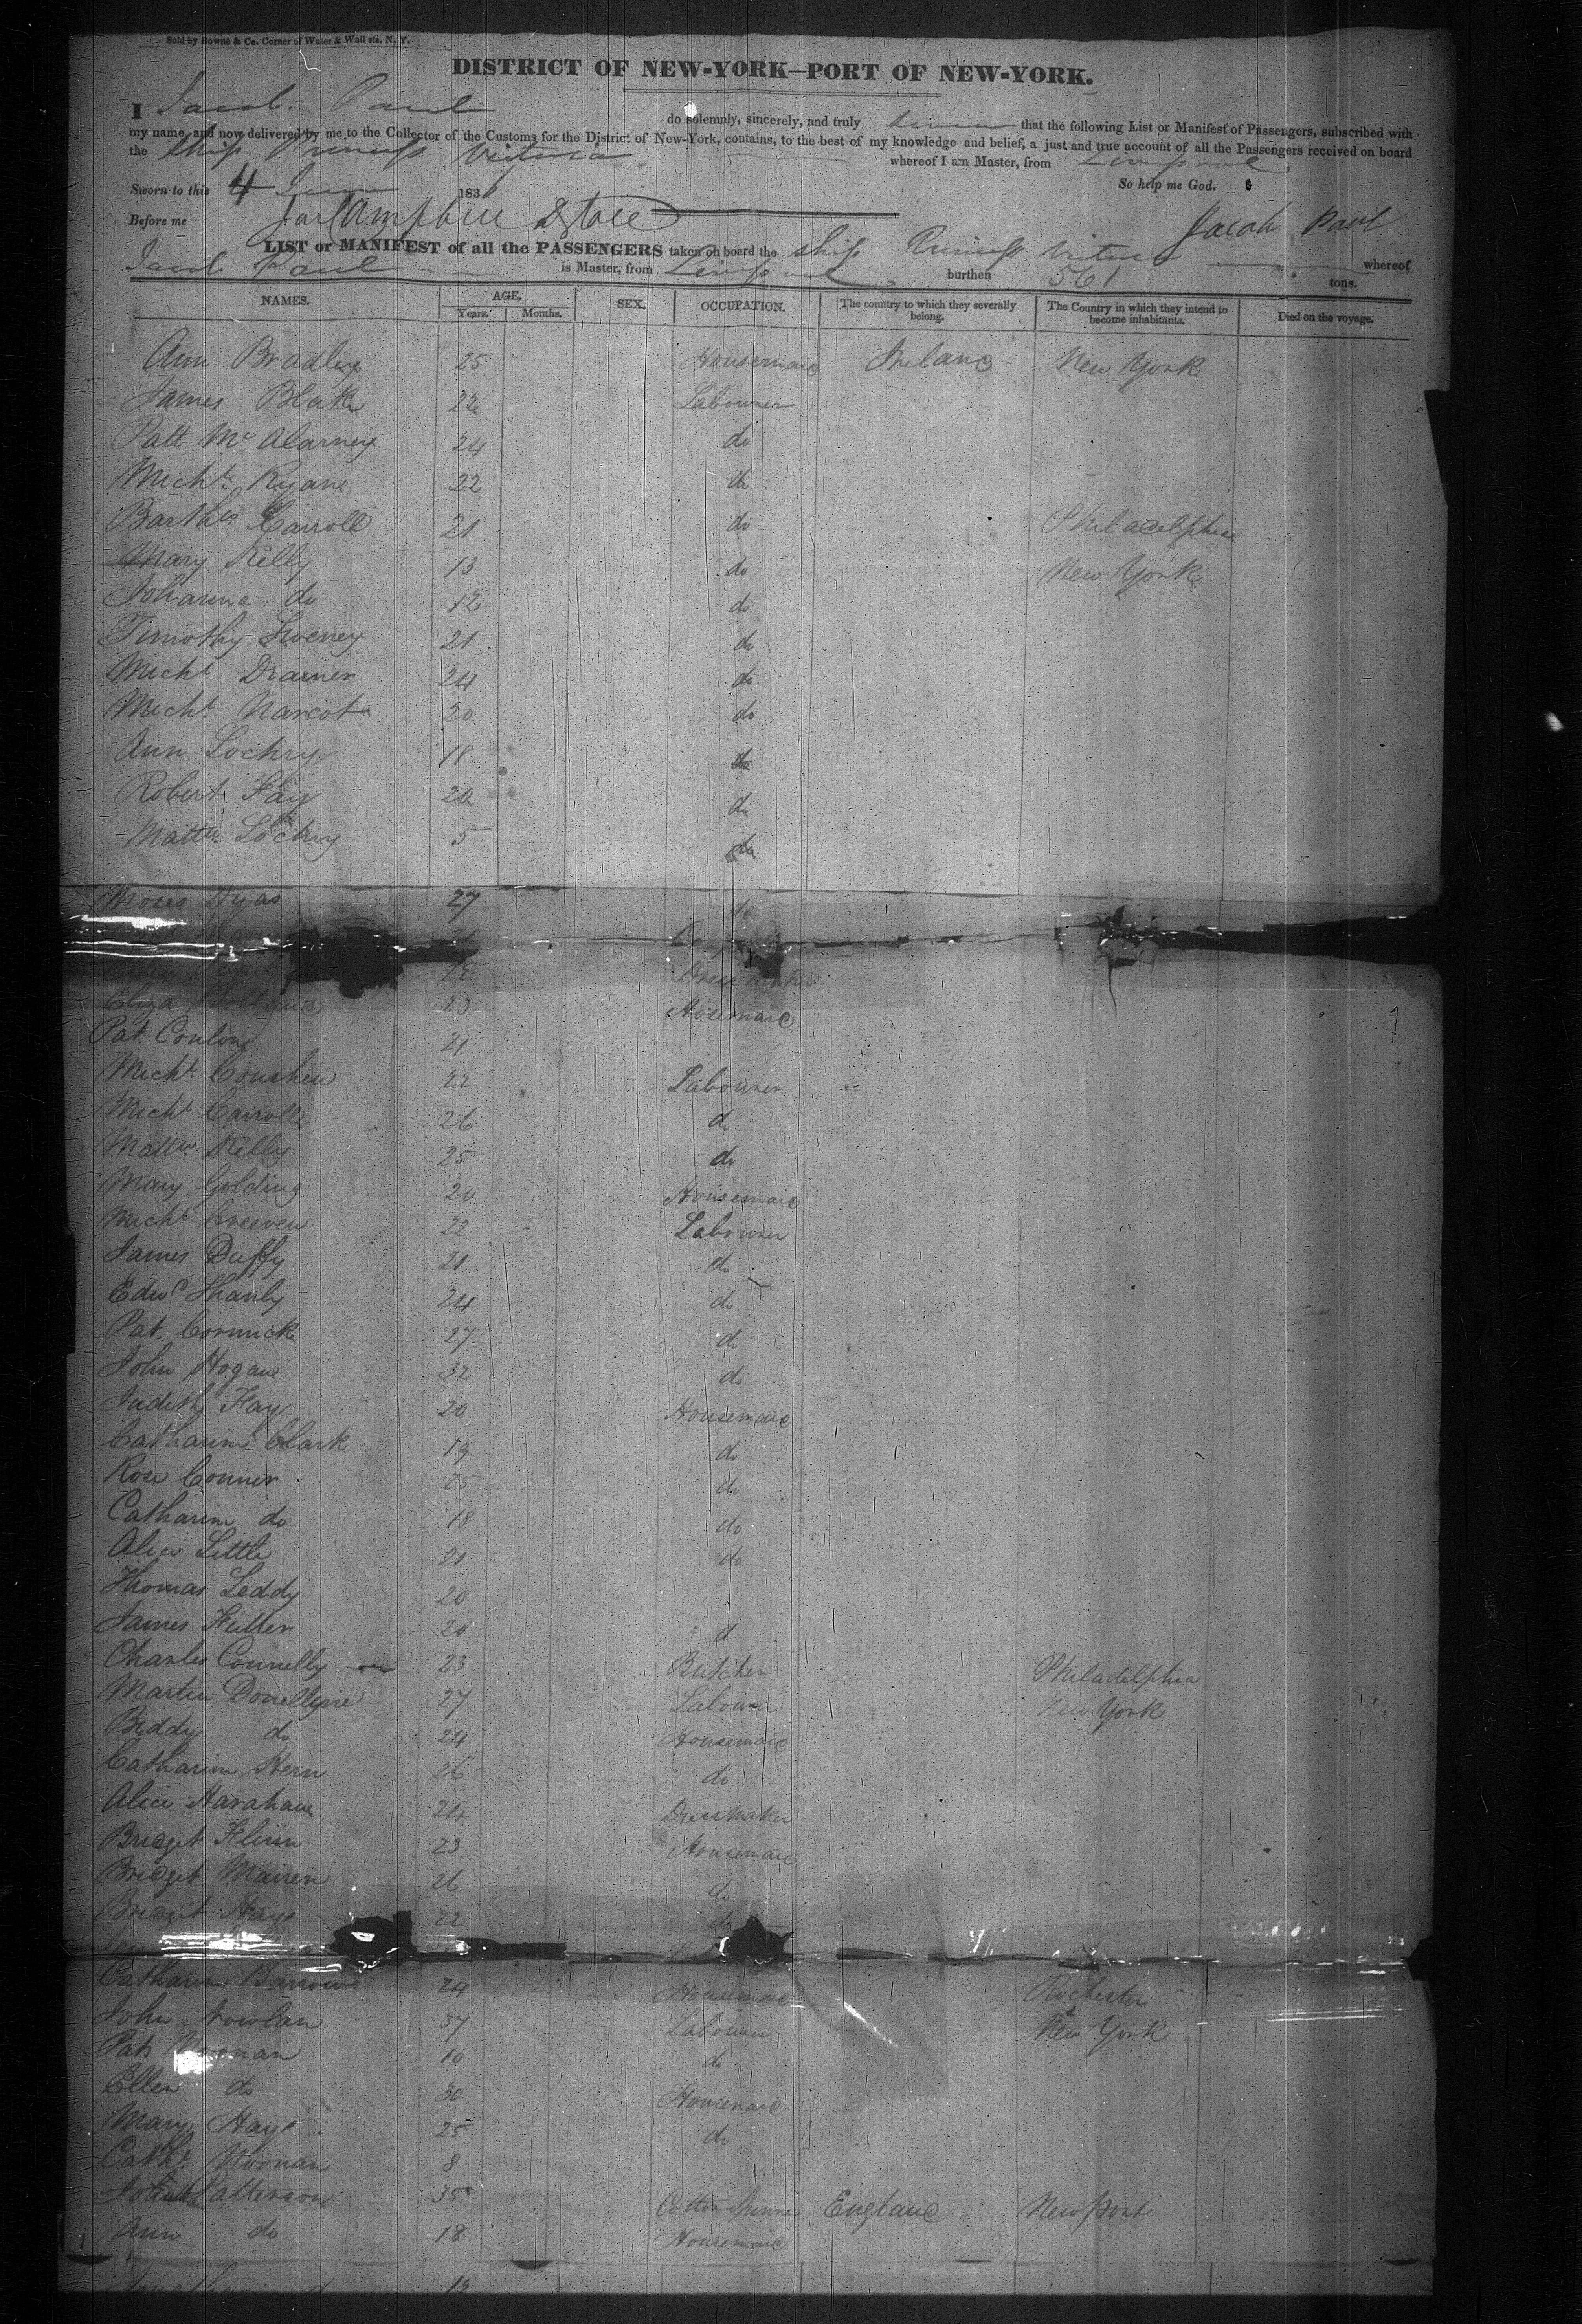 Sold by Downs & Co. Corner of Water & Wall sts. N. Y.
DISTRICT OF NEW-YORK—PORT OF NEW-YORK.
I Jacob Paul do solemnly, sincerely, and truly that the following List or Manifest of Passengers, subscribed with
my name, and now delivered by me to the Collector of the Customs for the District of New-York, contains, to the best of my knowledge and belief, a just and true account of all the Passengers received on board
the Ship Princess Victoria whereof I am Master, from Liverpool
Sworn to this 4 June 183 So help me God.
Before me Jacob Paul
LIST or MANIFEST of all the PASSENGERS taken on board the ship Princess Victoria whereof
Jacob Paul is Master, from Liverpool burthen 561 tons.
NAMES. AGE. SEX. OCCUPATION. The country to which they severally belong. The Country in which they intend to become inhabitants. Died on the voyage.
Years. Months.
Ann Bradley 25 Housemaid Ireland New York
James Blake 22 Labourer
Patt Mc Alarney 24 do
Michl. Ryan 22 do
Barthw Carroll 21 do Philadelphia
Mary Kelly 13 do New York
Johanna do 12 do
Timothy Sweney 21 do
Michl Drainer 24 do
Michl. 20 do
Ann Lochry 18 do
Robert Fay 20 do
Mattw. Lochry 5 do
Moses Dyas 27 do
Dress Maker
Eliza 23 Housemaid
Pat. Conlon 21
Michl. 22 Labourer
Michl Carroll 26 do
Mattw. Kelly 25 do
Mary Golding 20 Housemaid
Michl Creeven 22 Labourer
James Duffy 21 do
Edwd Shanly 24 do
Pat. Cormick 27 do
John Hogan 32 do
Judith Fay 20 Housemaid
Catharine Clark 19 do
Rose Conner 25 do
Catharine do 18 do
Alice Little 21 do
Thomas Leddy 20
James Fuller 20 d
Charles Connelly 23 Butcher Philadelphia
Martin Donellyne 27 Labourer New York
Biddy do 24 Housemaid
Catharine Hern 26 do
Alice Harahan 24 Dressmaker
Bridget Flinn 23 Housemaid
Bridget Mairen 26 do
Bridget Hays 22 do
Catharine Barrowe 24 Housemaid Rochester
John Nowlan 37 Labourer New York
Patk Noonan 10 do
Ellen do 30 Housemaid
Mary Hays 25 do
Cathe. Noonan 8
Patterson 35 Cotton Spinner England Newport
Ann do 18 Housemaid